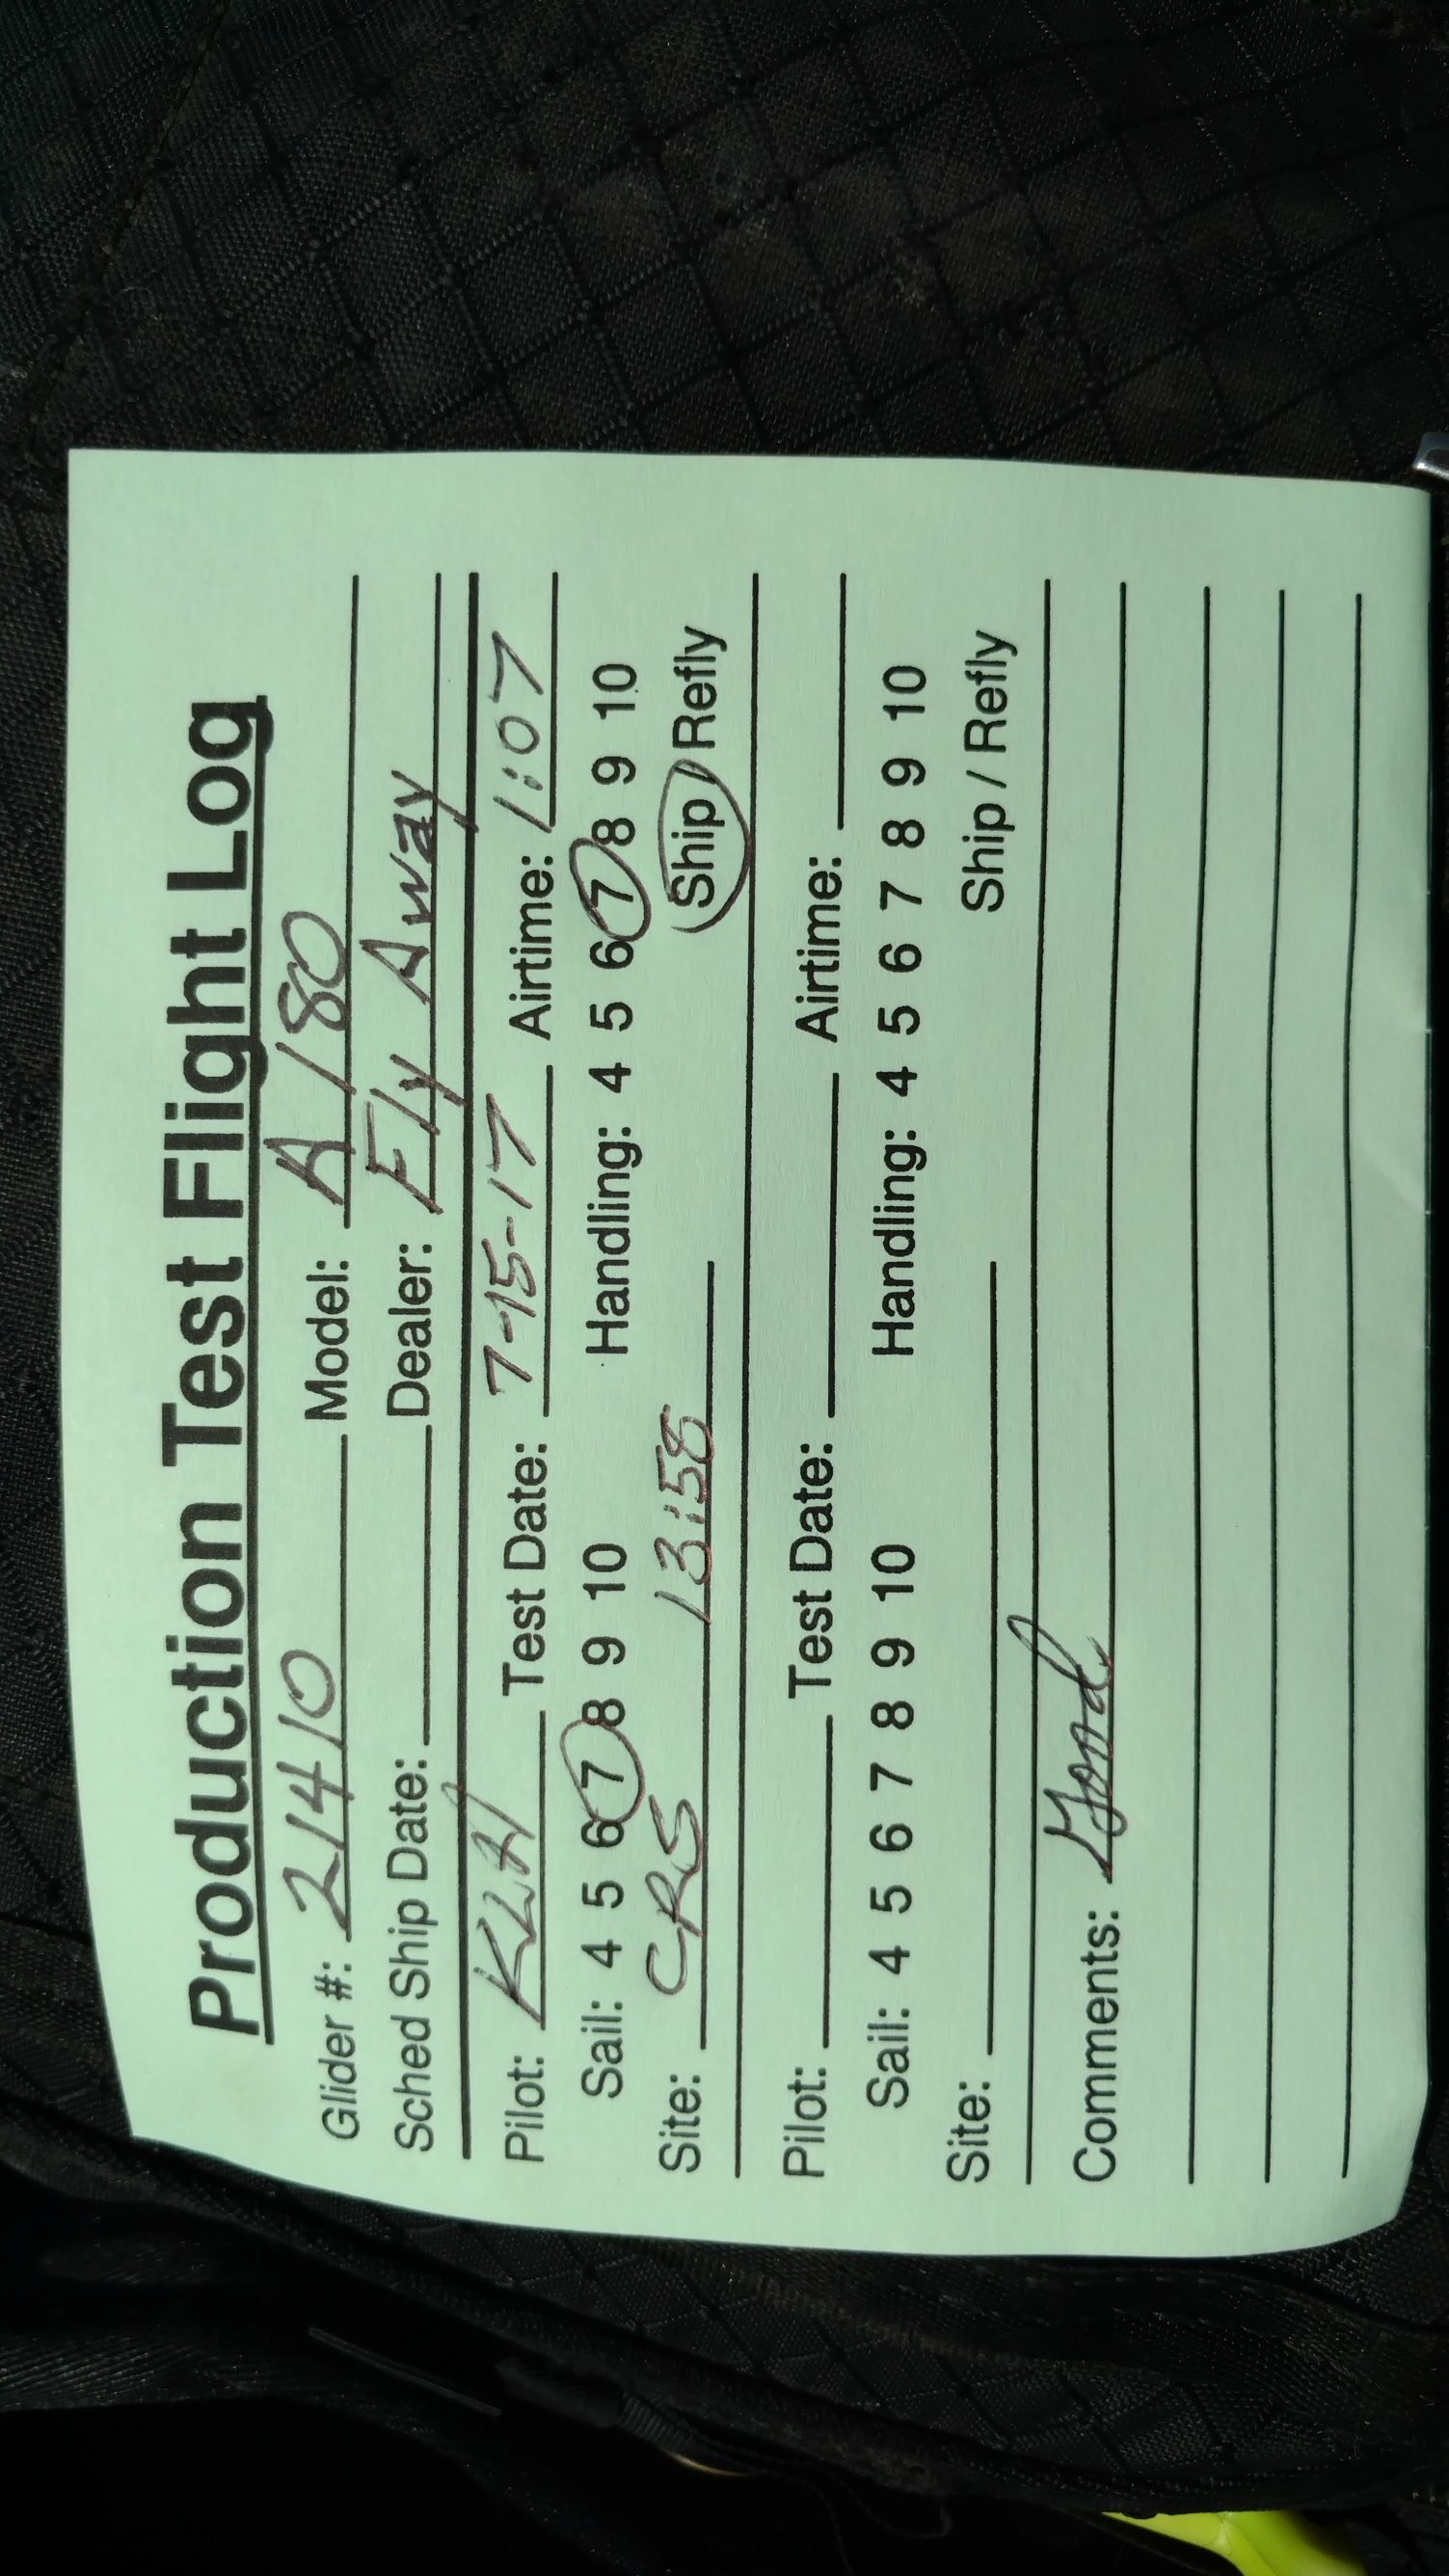 Production Test Flight Log
Glider #: 21410 Model: A 180
Sched Ship Date: Dealer: Fly Away
Pilot: Test Date: 7-15-17 Airtime: 1:07
Sail: 4 5 6 7 8 9 10 Handling: 4 5 6 7 8 9 10
Site: CRS 13:58 Ship / Refly
Pilot: Test Date: Airtime:
Sail: 4 5 6 7 8 9 10 Handling: 4 5 6 7 8 9 10
Site: Ship / Refly
Comments: Good